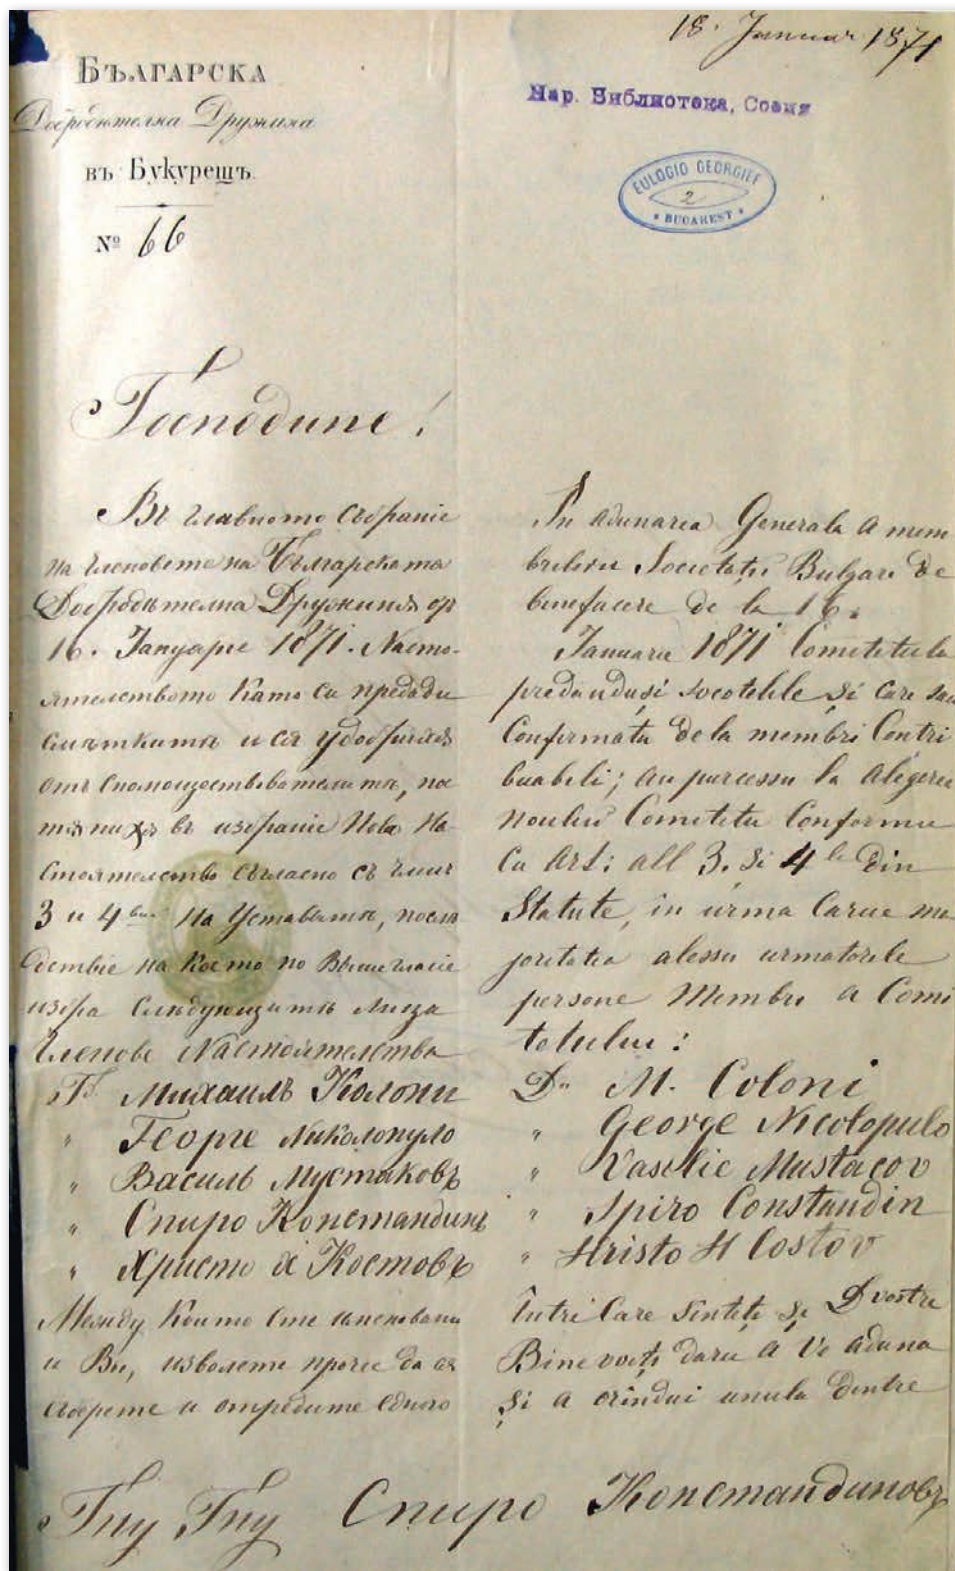 18. Januar 1871
БЪЛГАРСКА
Добродѣтелна Дружина
въ Букурещъ.
№ 66
Нар. Библиотека, София
EULOGIO GEORGIEF
2
* BUCAREST *
Господине!
Въ главното Събраніе
на Членовете на Българската
Добродѣтелна Дружина отъ
16. Януаріе 1871. Насто-
ятелството Като си предади
смѣткитѣ и ся удобрихѫ
отъ Спомоществователитѣ, по
въ избраніе Ново На-
стоятелство Съгласно съ член
3 и 4 На Уставътъ, послѣ
дствіе на Което по Вишегласіе
избра Слѣдующитѣ Лица
Членове Настоятелства
Гъ Михаилъ Колони
" Георге Николопуло
" Василь Мустаковъ
" Спиро Константинъ
" Христо х Костовъ
Между Които Сте именовани
и Ви, изволете прочее да ся
сберете и отредите едного
In adunarea Generala a mem
briloru Societăţii Bulgare de
benefacere de la 16.
Januarie 1871 Comitetulu
predanduşi socotelile şi care sau
Confirmatu de la membri Contri
buabili; au purcessu la alegerea
noului Comitetu Conformu
Cu Art: all 3. şi 4 le din
Statute, in urma Carue ma
joritatea alessu urmatorele
persone Membri a Comi
tetului:
Dnu M. Coloni
" George Nicolopulo
" Vasilie Mustacov
" Spiro Constandin
" Hristo H Costov
între Care sînteţi şi Dvostre
Bine voiţi daru a Ve aduna
şi a orîndui unulu dintre
Гну Гну Спиро Константиновъ